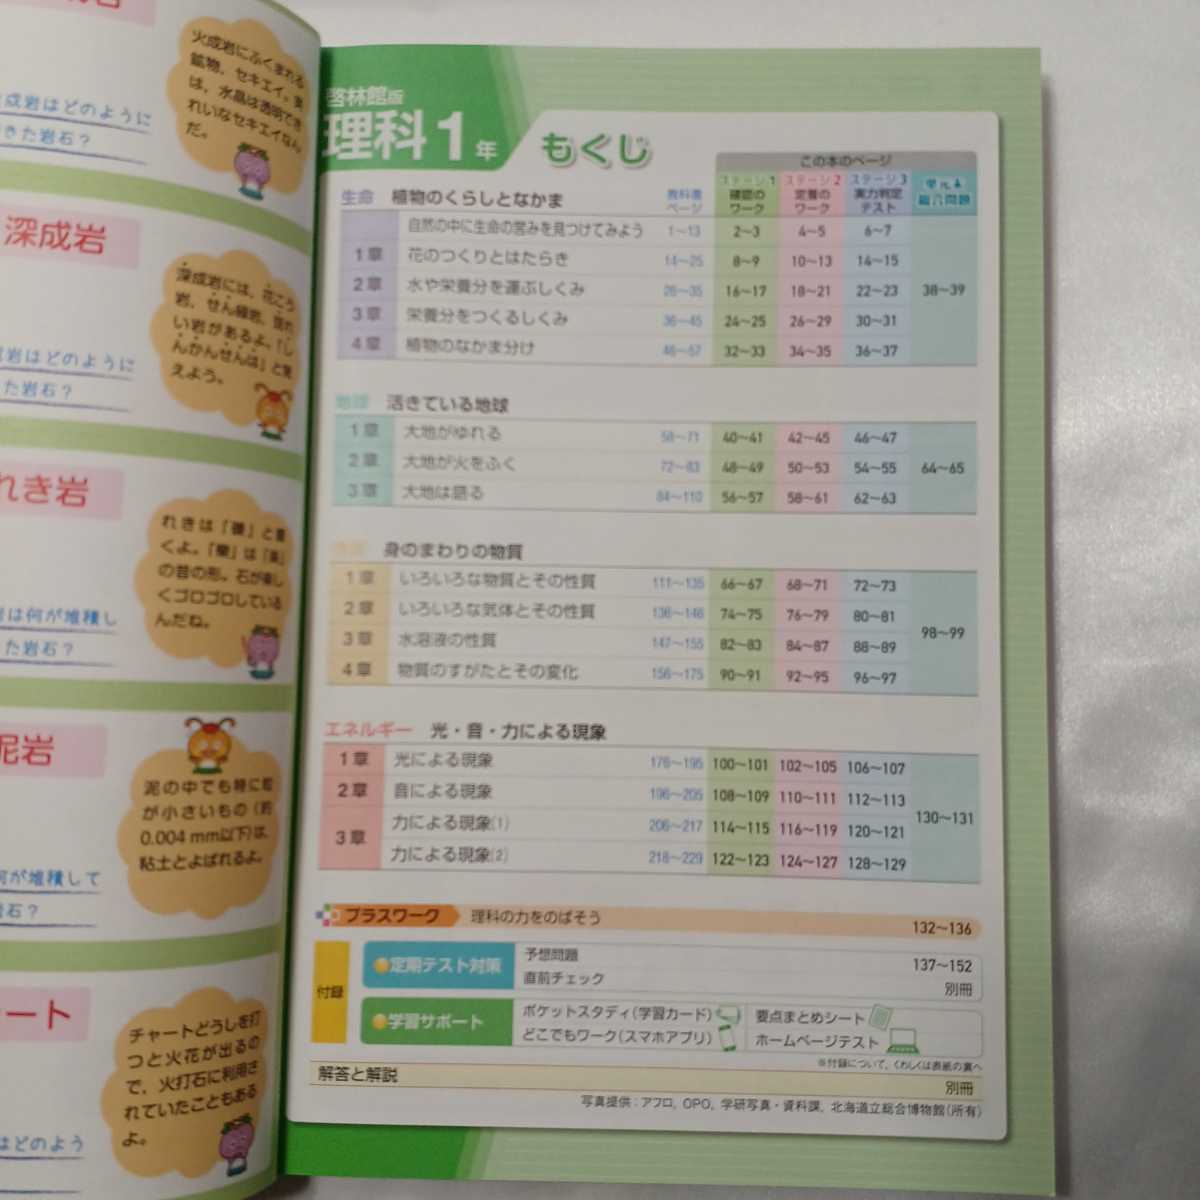 火成岩にふくまれる
鉱物、セキエイ。実
は、水晶は透明でき
れいなセキエイなん
だ。
成岩はどのように
きた岩石？
深成岩
深成岩には、花こう
岩、せん緑岩、斑れ
い岩があるよ。「し
んかんせんは」と覚
えよう。
岩はどのように
た岩石？
れき岩
れきは「礫」と書
くよ。「樂」は「楽」
の昔の形。石が楽し
くゴロゴロしている
んだね。
岩は何が堆積し
た岩石？
泥岩
泥の中でも特に粒
が小さいもの（約
0.004 mm以下）は、
粘土とよばれるよ。
何が堆積して
岩石？
ート
チャートどうしを打
つと火花が出るの
で、火打石に利用さ
れていたこともある
よ。
はどのよう
啓林館版
理科1年 もくじ
この本のページ
生命 植物のくらしとなかま 教科書ページ ステージ1 確認のワーク ステージ2 定着のワーク ステージ3 実力判定テスト 単元末総合問題
自然の中に生命の営みを見つけてみよう 1～13 2～3 4～5 6～7
1章 花のつくりとはたらき 14～25 8～9 10～13 14～15
2章 水や栄養分を運ぶしくみ 26～35 16～17 18～21 22～23 38～39
3章 栄養分をつくるしくみ 36～45 24～25 26～29 30～31
4章 植物のなかま分け 46～57 32～33 34～35 36～37
地球 活きている地球
1章 大地がゆれる 58～71 40～41 42～45 46～47
2章 大地が火をふく 72～83 48～49 50～53 54～55 64～65
3章 大地は語る 84～110 56～57 58～61 62～63
物質 身のまわりの物質
1章 いろいろな物質とその性質 111～135 66～67 68～71 72～73
2章 いろいろな気体とその性質 136～146 74～75 76～79 80～81 98～99
3章 水溶液の性質 147～155 82～83 84～87 88～89
4章 物質のすがたとその変化 156～175 90～91 92～95 96～97
エネルギー 光・音・力による現象
1章 光による現象 176～195 100～101 102～105 106～107
2章 音による現象 196～205 108～109 110～111 112～113 130～131
3章 力による現象(1) 206～217 114～115 116～119 120～121
力による現象(2) 218～229 122～123 124～127 128～129
プラスワーク 理科の力をのばそう 132～136
付録
定期テスト対策 予想問題 137～152
直前チェック 別冊
学習サポート ポケットスタディ(学習カード) 要点まとめシート
どこでもワーク(スマホアプリ) ホームページテスト
※付録について、くわしくは表紙の裏へ
解答と解説 別冊
写真提供：アフロ, OPO, 学研写真・資料課, 北海道立総合博物館(所有)